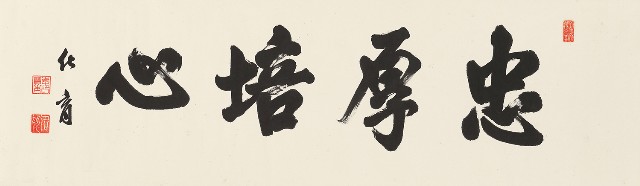 忠厚培心
化育